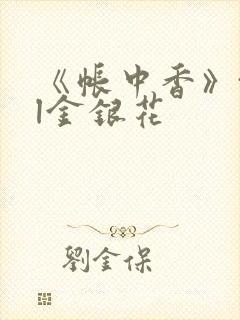 《帐中香》
l金银花
劉金保